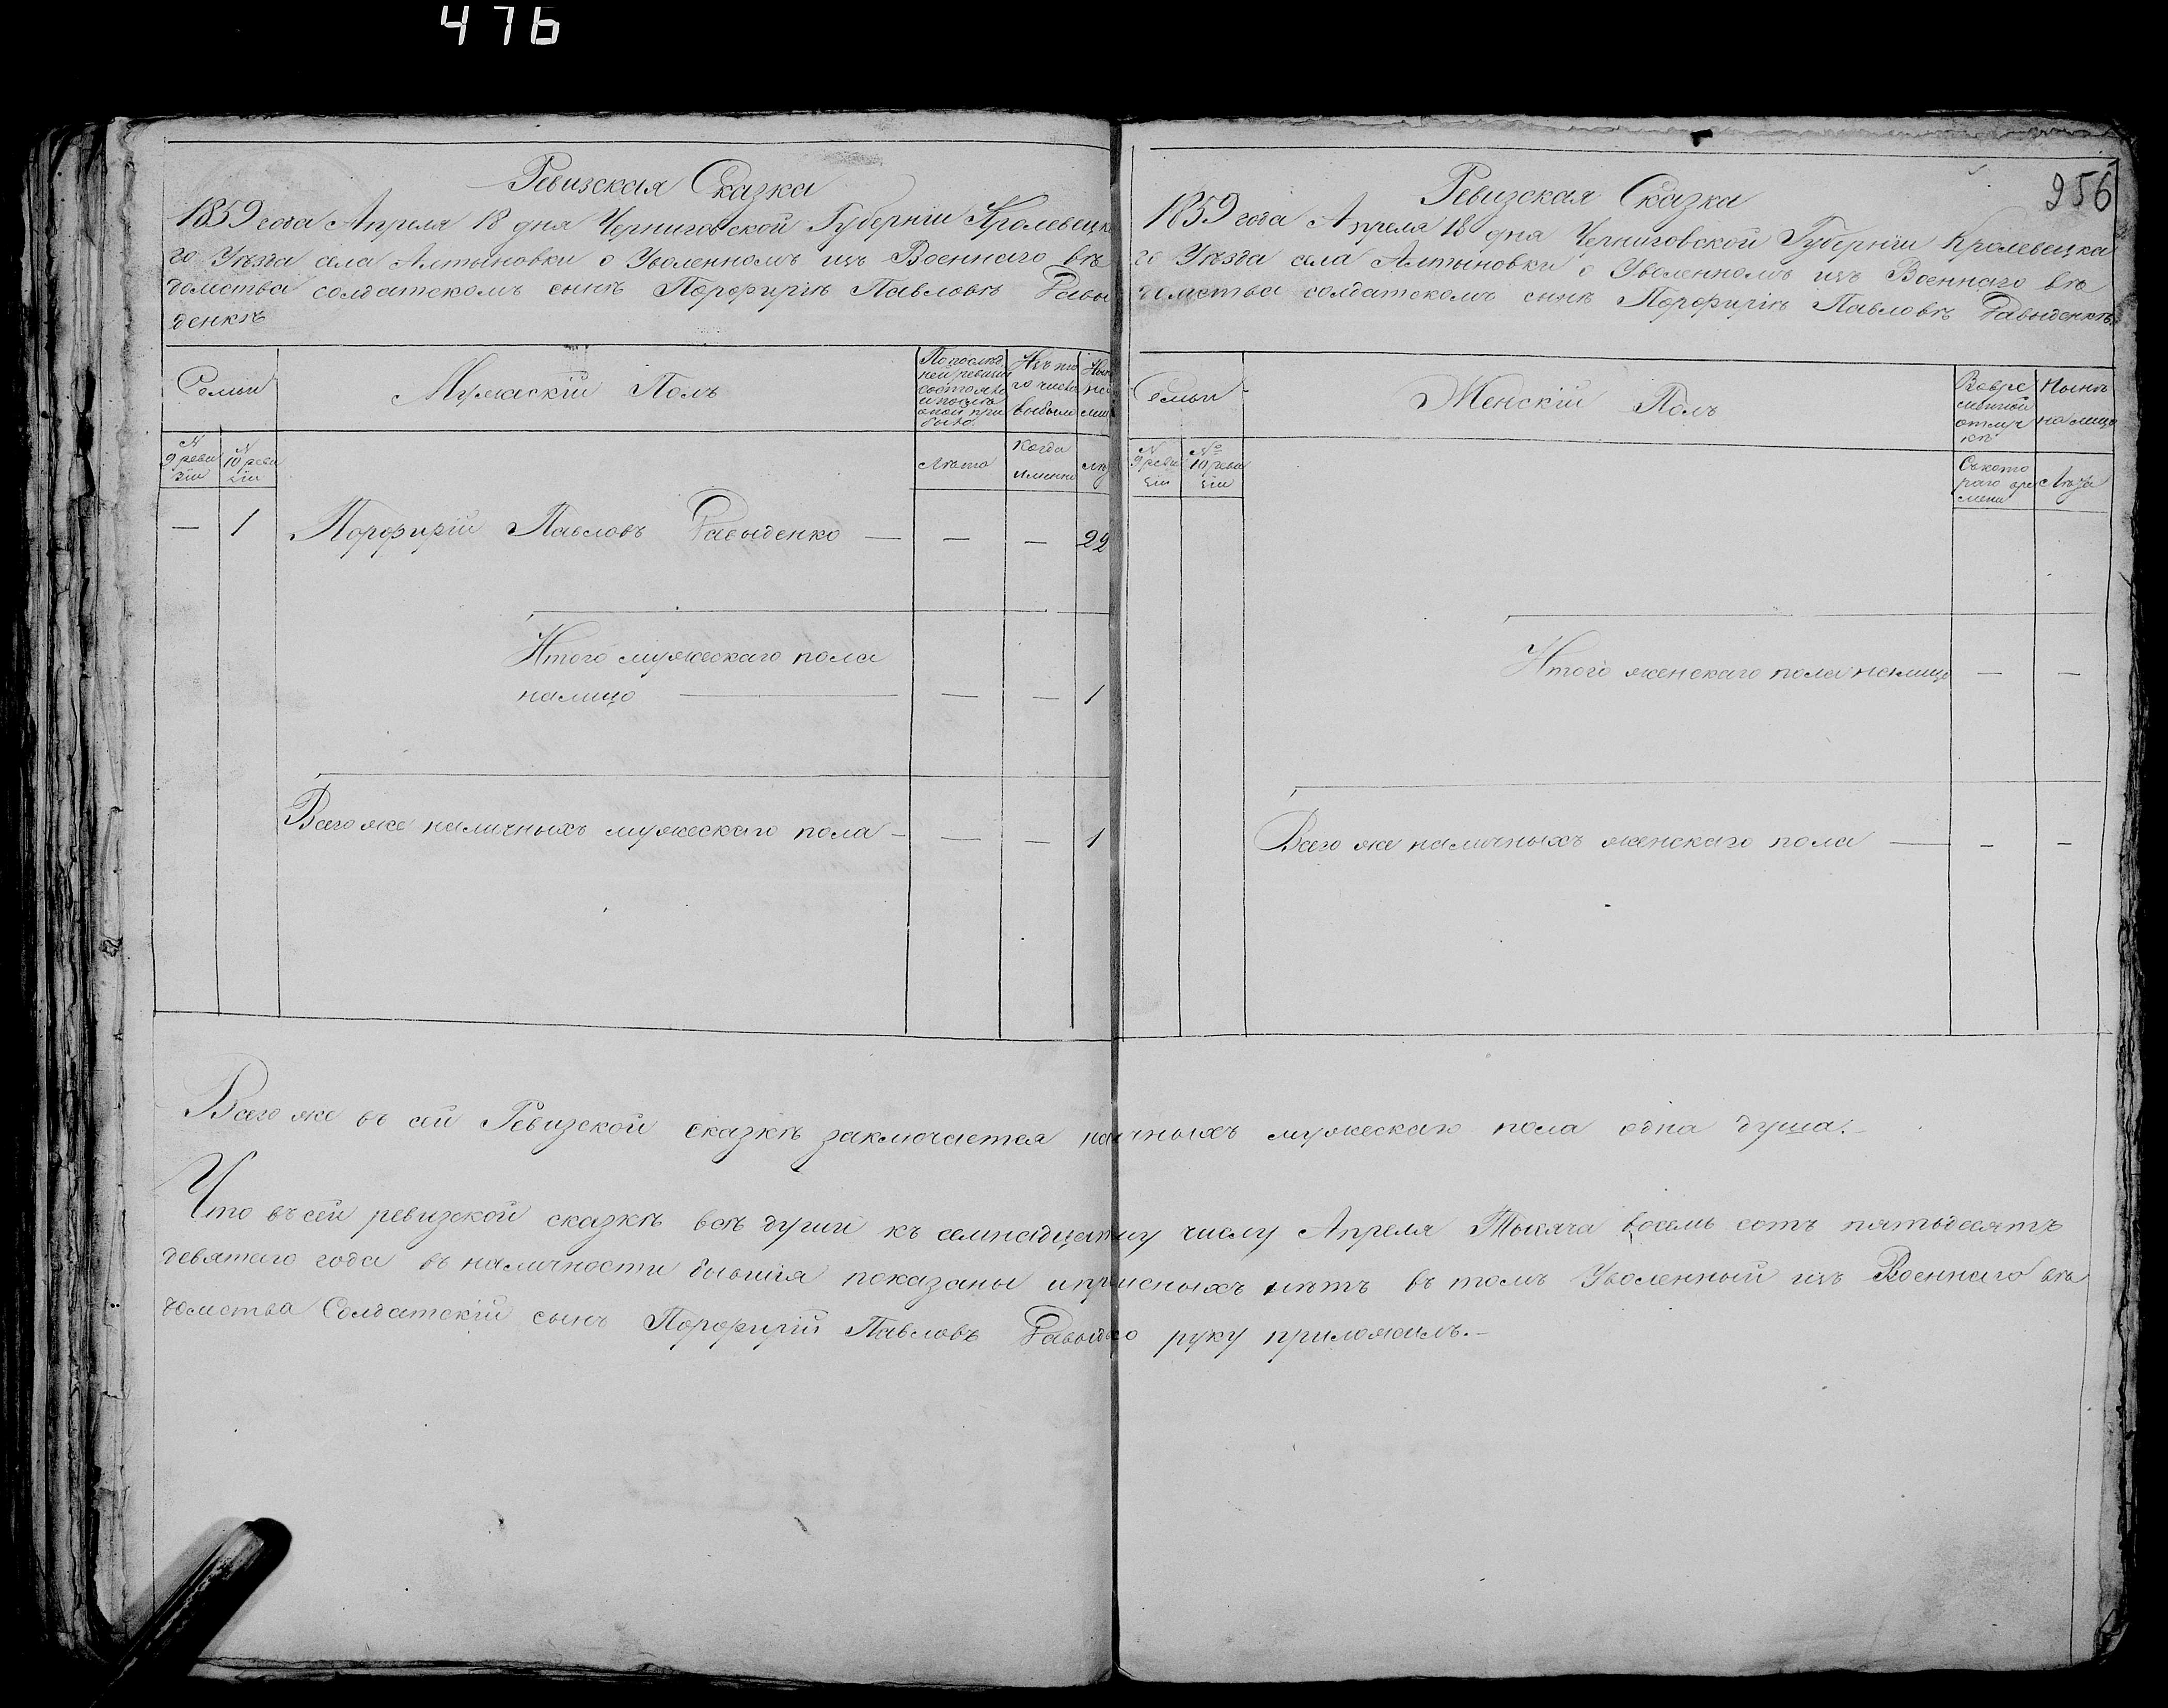 476
Ревизская Сказка
1859 года Апреля 18 дня Черниговской Губерніи Кролевецка
го Уѣзда села Алтыновки о Уволенномъ изъ Военнаго вѣ
домства солдатскомъ сынѣ Порфиріѣ Павловѣ Давы
денкѣ
Семьи
Мужаскій Полъ
По послѣд
ней ревизіи
состояло
и послѣ
оной при
было
Изъ то
го числа
выбыло
N
9 реви
зіи
N
10 реви
зіи
Лѣта
Когда
именно
— 1 Порфирій Павловъ Давыденко — — — 22
Итого мужескаго пола
налицо — — — 1
Всего же наличныхъ мужескаго пола — — — 1
956
Ревизская Сказка
1859 года Апреля 18 дня Черниговской Губерніи Кролевецка
го Уѣзда села Алтыновки о Уволенномъ изъ Военнаго вѣ
домства солдатскомъ сынѣ Порфиріѣ Павловѣ Давыденкѣ.
Семьи
Женскій Полъ
Во вре
менной
отлуч
кѣ
Нынѣ
налицо
N
9 реви
зіи
№
10 реви
зіи
Съ кото
раго вре
мени
Лѣта
Итого женскаго пола налицо — —
Всего же наличныхъ женскаго пола — — —
Всего же въ сей Ревизской сказкѣ заключается на чныхъ мужескаго пола одна душа.
Что въ сей ревизской сказкѣ всѣ души къ семнадцатому числу Апреля Тысяча восемь сотъ пятьдесятъ
девятаго года въ наличности бывшія показаны и прписныхъ нѣтъ въ томъ Уволенный изъ Военнаго вѣ
домства Солдатскій сынъ Порфирій Павловъ руку приложилъ.